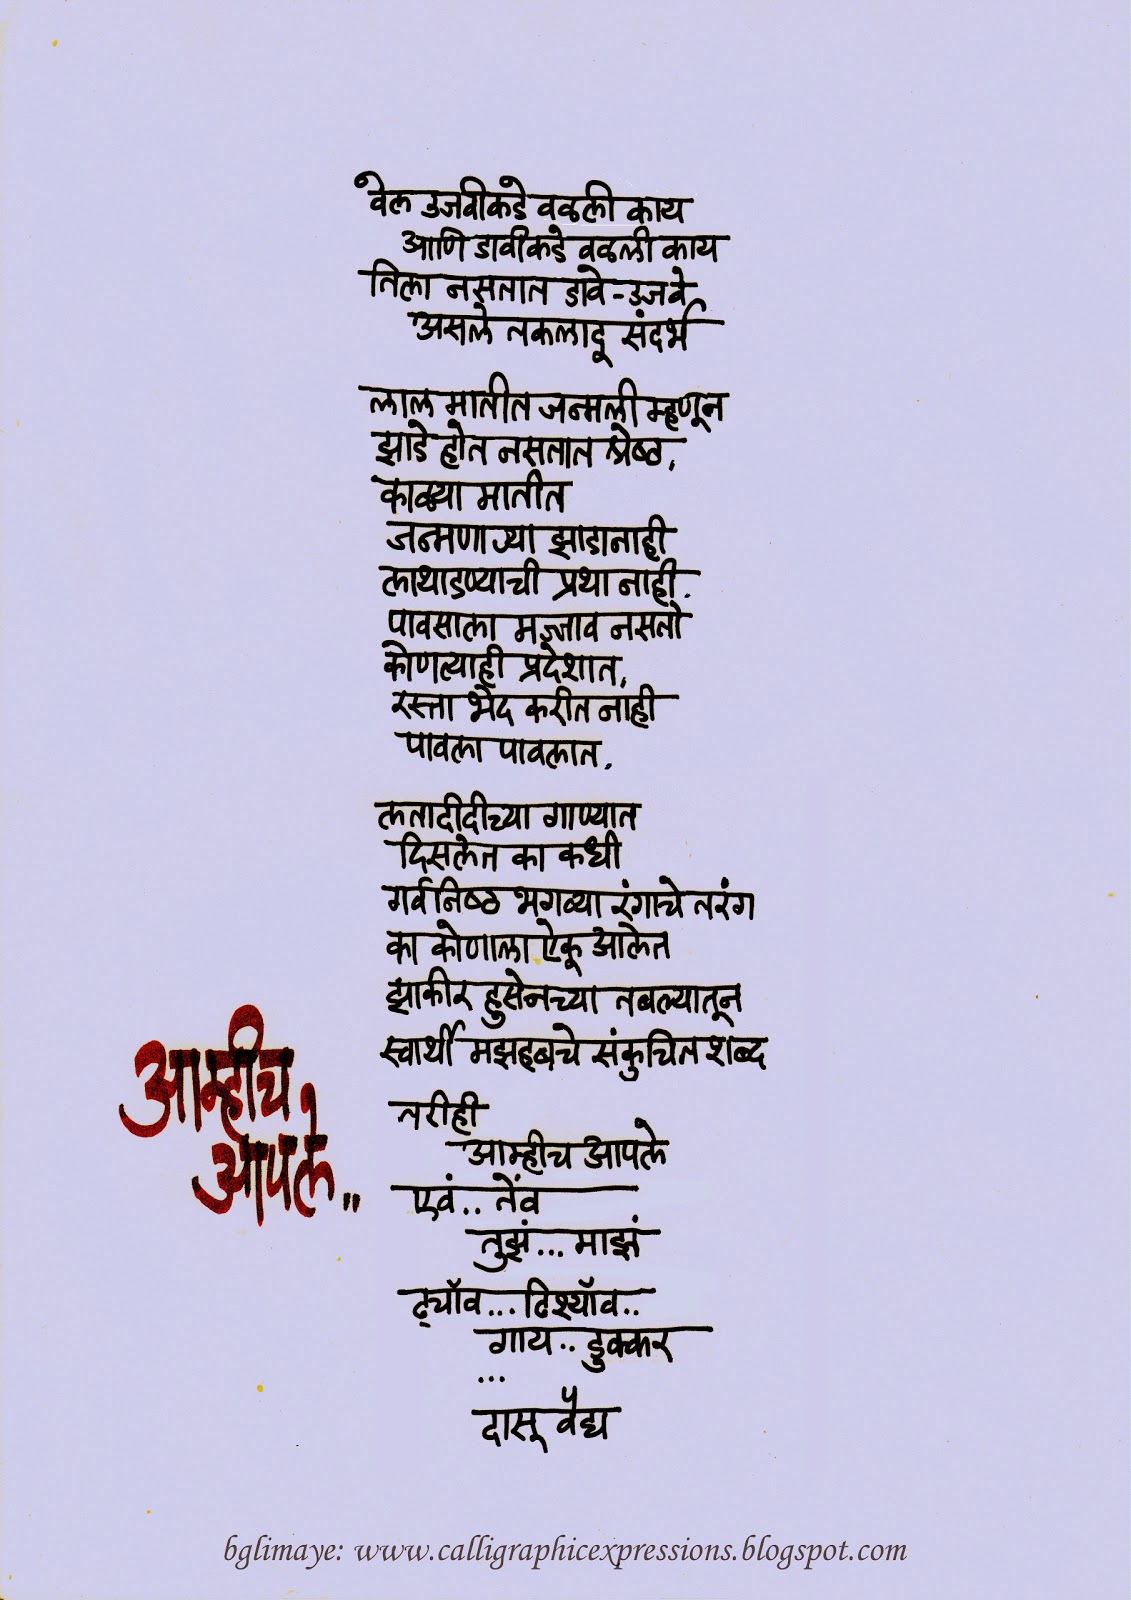 वेल उजवीकडे वळली काय
आणि डावीकडे वळली काय
तिला नसतात डावे-उजवे
असले तकलादू संदर्भ
लाल मातीत जन्मली म्हणून
झाडे होत नसतात श्रेष्ठ,
काळ्या मातीत
जन्मणाऱ्या झाडानाही
लाथाडण्याची प्रथा नाही.
पावसाला मज्जाव नसतो
कोणत्याही प्रदेशात,
रस्ता भेद करीत नाही
पावला पावलात.
लतादीदीच्या गाण्यात
दिसलेत का कधी
गर्वनिष्ठ भगव्या रंगाचे तरंग
का कोणाला ऐकू आलेत
झाकीर हुसेनच्या तबल्यातून
स्वार्थी मझहबचे संकुचित शब्द
तरीही
आम्हीच आपले
एवं.. तेंव
तुझं... माझं
ढ्चॉव... ढिश्यॉव..
गाय.. डुक्कर
...
दासू वैद्य
आम्हीच
आपले..
bglimaye: www.calligraphicexpressions.blogspot.com